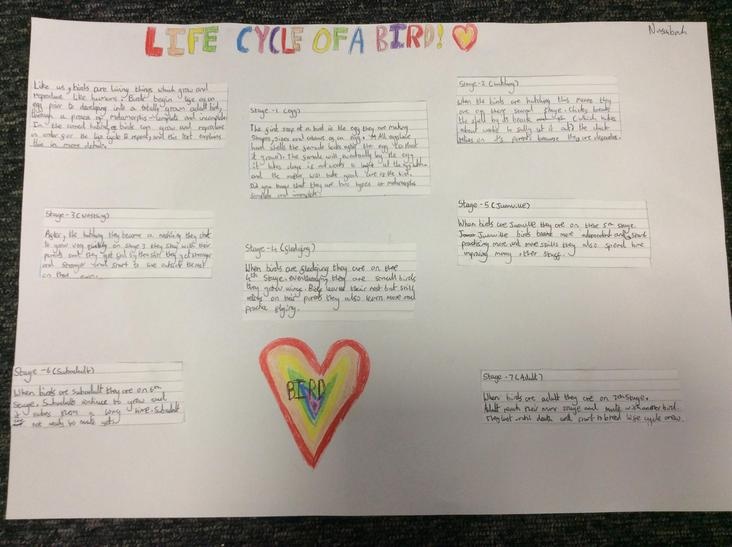 LIFE CYCLE OF A BIRD!
Nusaibah
Like us, birds are living things which grow and
reproduce. Like humans, Birds begin life as an
egg prior to developing into a totally grown adult bird,
through a process of metamorphis complete and incomplete
In the correct habitat birds can grow and reproduce
in order for the life cycle to repeat and this text explains
this in more detail.
Stage -1 (egg)
The first stage of a bird is the egg they are making
shapes, sizes and colours of an egg. All egg have
hard shells the female looks after the egg so that
it grows. The female will eventually lay the egg
it takes days
and the mother will take good care of the bird.
Did you know that they are two types of metamorphis
complete and incomplete.
Stage -2 (hatching)
When the birds are hatching this means they
are on there second stage. Chicks break
the shell by its break which takes
about to fully get it out) the chick
relies on it's parents because they are
Stage -3 (nestling)
After, the hatching they become a nestling they start
to grow very quickly on stage 3 they stay with their
parents and they get fed by their they get stronger
and stronger and start to see outside the nest
on their own.
Stage -4 (fledging)
When birds are fledging they are on there
4th stage. eventually they are small birds
they grow wings. Birds leaves their nest but still
relies on their parents they also learn more and
practice flying.
Stage -5 (Juvinille)
When birds are Juvinille they are on there 5th stage.
Juvinille birds become more independent and start
practising more and more skills they also spend time
improving many other stuff.
Stage -6 (Subadult)
When birds are subadult they are on 6th
stage. Subadults continue to grow and
it takes them a long time. Subadult
not ready to mate yet.
BIRD
Stage -7 (Adult)
When birds are adult they are on 7th stage.
Adult reach their stage and mate with another bird.
They last until death and start to breed life cycle